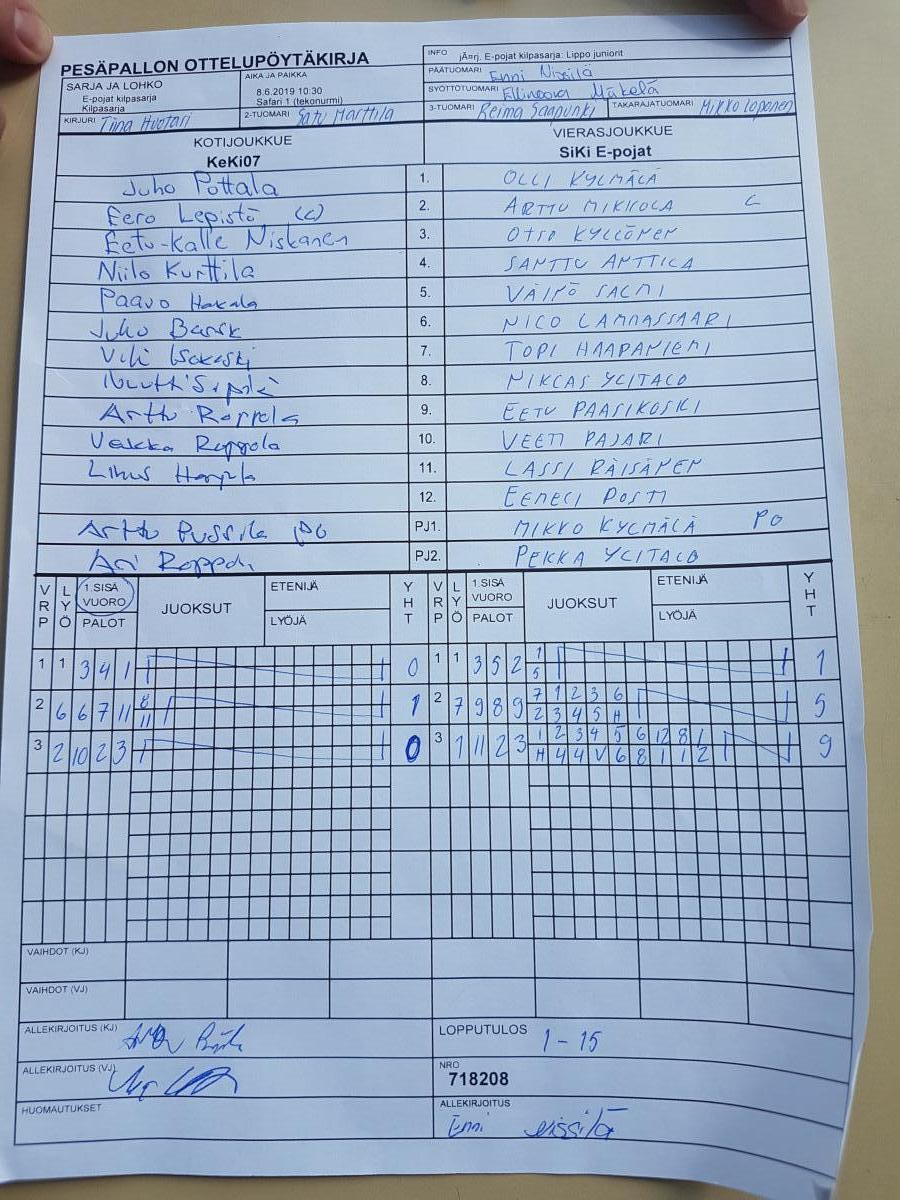 PESÄPALLON OTTELUPÖYTÄKIRJA
INFO jÃ¤rj. E-pojat kilpasarja: Lippo juniorit
SARJA JA LOHKO
E-pojat kilpasarja
Kilpasarja
AIKA JA PAIKKA
8.6.2019 10:30
Safari 1 (tekonurmi)
PÄÄTUOMARI Enni Nissilä
SYÖTTÖTUOMARI Ellinoora Mäkelä
KIRJURI Tiina Huotari
2-TUOMARI Satu Marttila
3-TUOMARI Reima Saapunki
TAKARAJATUOMARI Mikko Loponen
KOTIJOUKKUE
KeKi07
VIERASJOUKKUE
SiKi E-pojat
Juho Pottala 1. OLLI KYLMÄLÄ
Eero Lepistö (c) 2. ARTTU MIKKOLA C
Eetu-Kalle Niskanen 3. OTSO KYLLÖNEN
Niilo Kurttila 4. SANTTU ANTTILA
Paavo Hakala 5. VÄINÖ SALMI
Juho Barsk 6. NICO LAMMASSAARI
Vili 7. TOPI HAAPANIEMI
8. NIKLAS YLITALO
Arttu Roppola 9. EETU PAASIKOSKI
Veikka Roppola 10. VEETI PAJARI
Linus 11. LASSI RÄISÄNEN
12. EEMELI POSTI
Arttu Pussila PO PJ1. MIKKO KYLMÄLÄ PO
Ari Roppola PJ2. PEKKA YLITALO
VRP LYÖ 1.SISÄ VUORO PALOT JUOKSUT ETENIJÄ LYÖJÄ YHT VRP LYÖ 1.SISÄ VUORO PALOT JUOKSUT ETENIJÄ LYÖJÄ YHT
1 1 3 4 1 0 1 1 3 5 2 1 1
5
2 6 6 7 11 8 1 2 7 9 8 9 7 1 2 3 6 5
11 2 3 4 5 H
3 2 10 2 3 0 3 1 11 2 3 1 2 3 4 5 6 12 8 1 9
H 4 4 V 6 8 1 1 2
VAIHDOT (KJ)
VAIHDOT (VJ)
ALLEKIRJOITUS (KJ)
LOPPUTULOS 1 - 15
ALLEKIRJOITUS (VJ)
NRO
718208
HUOMAUTUKSET
ALLEKIRJOITUS
Enni Nissilä